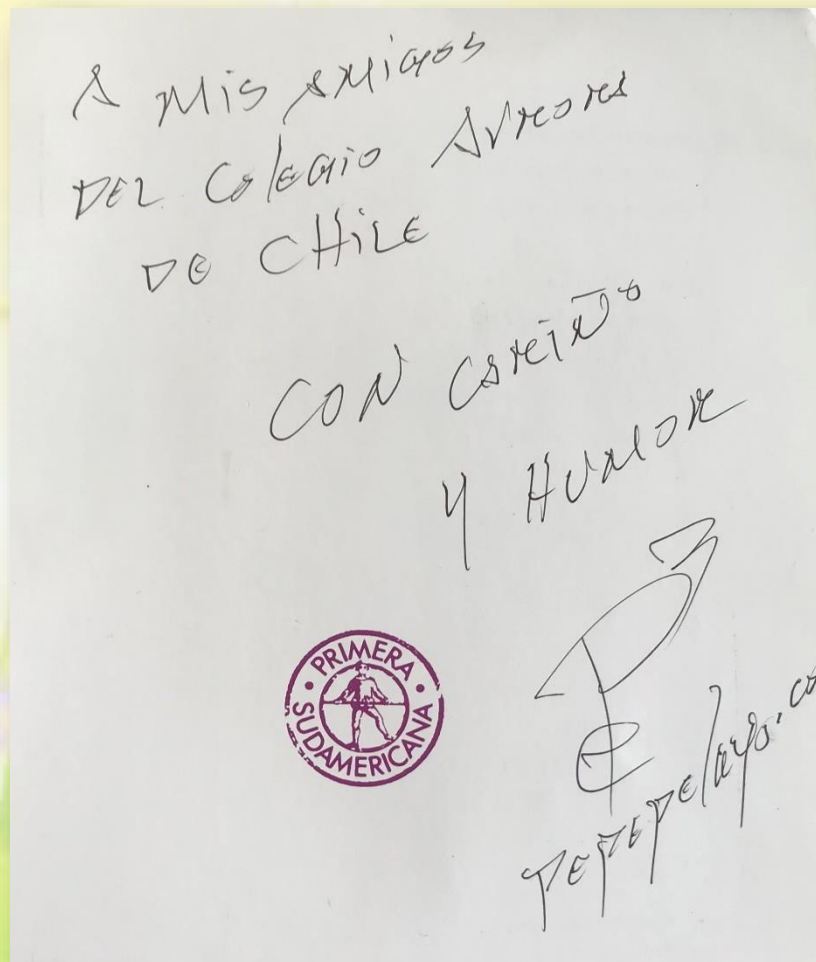 A MIS AMIGOS
DEL COLEGIO AUTORES
DE CHILE
CON CARIÑO
Y HUMOR
PRIMERA
SUDAMERICANA
pepepelayo.co